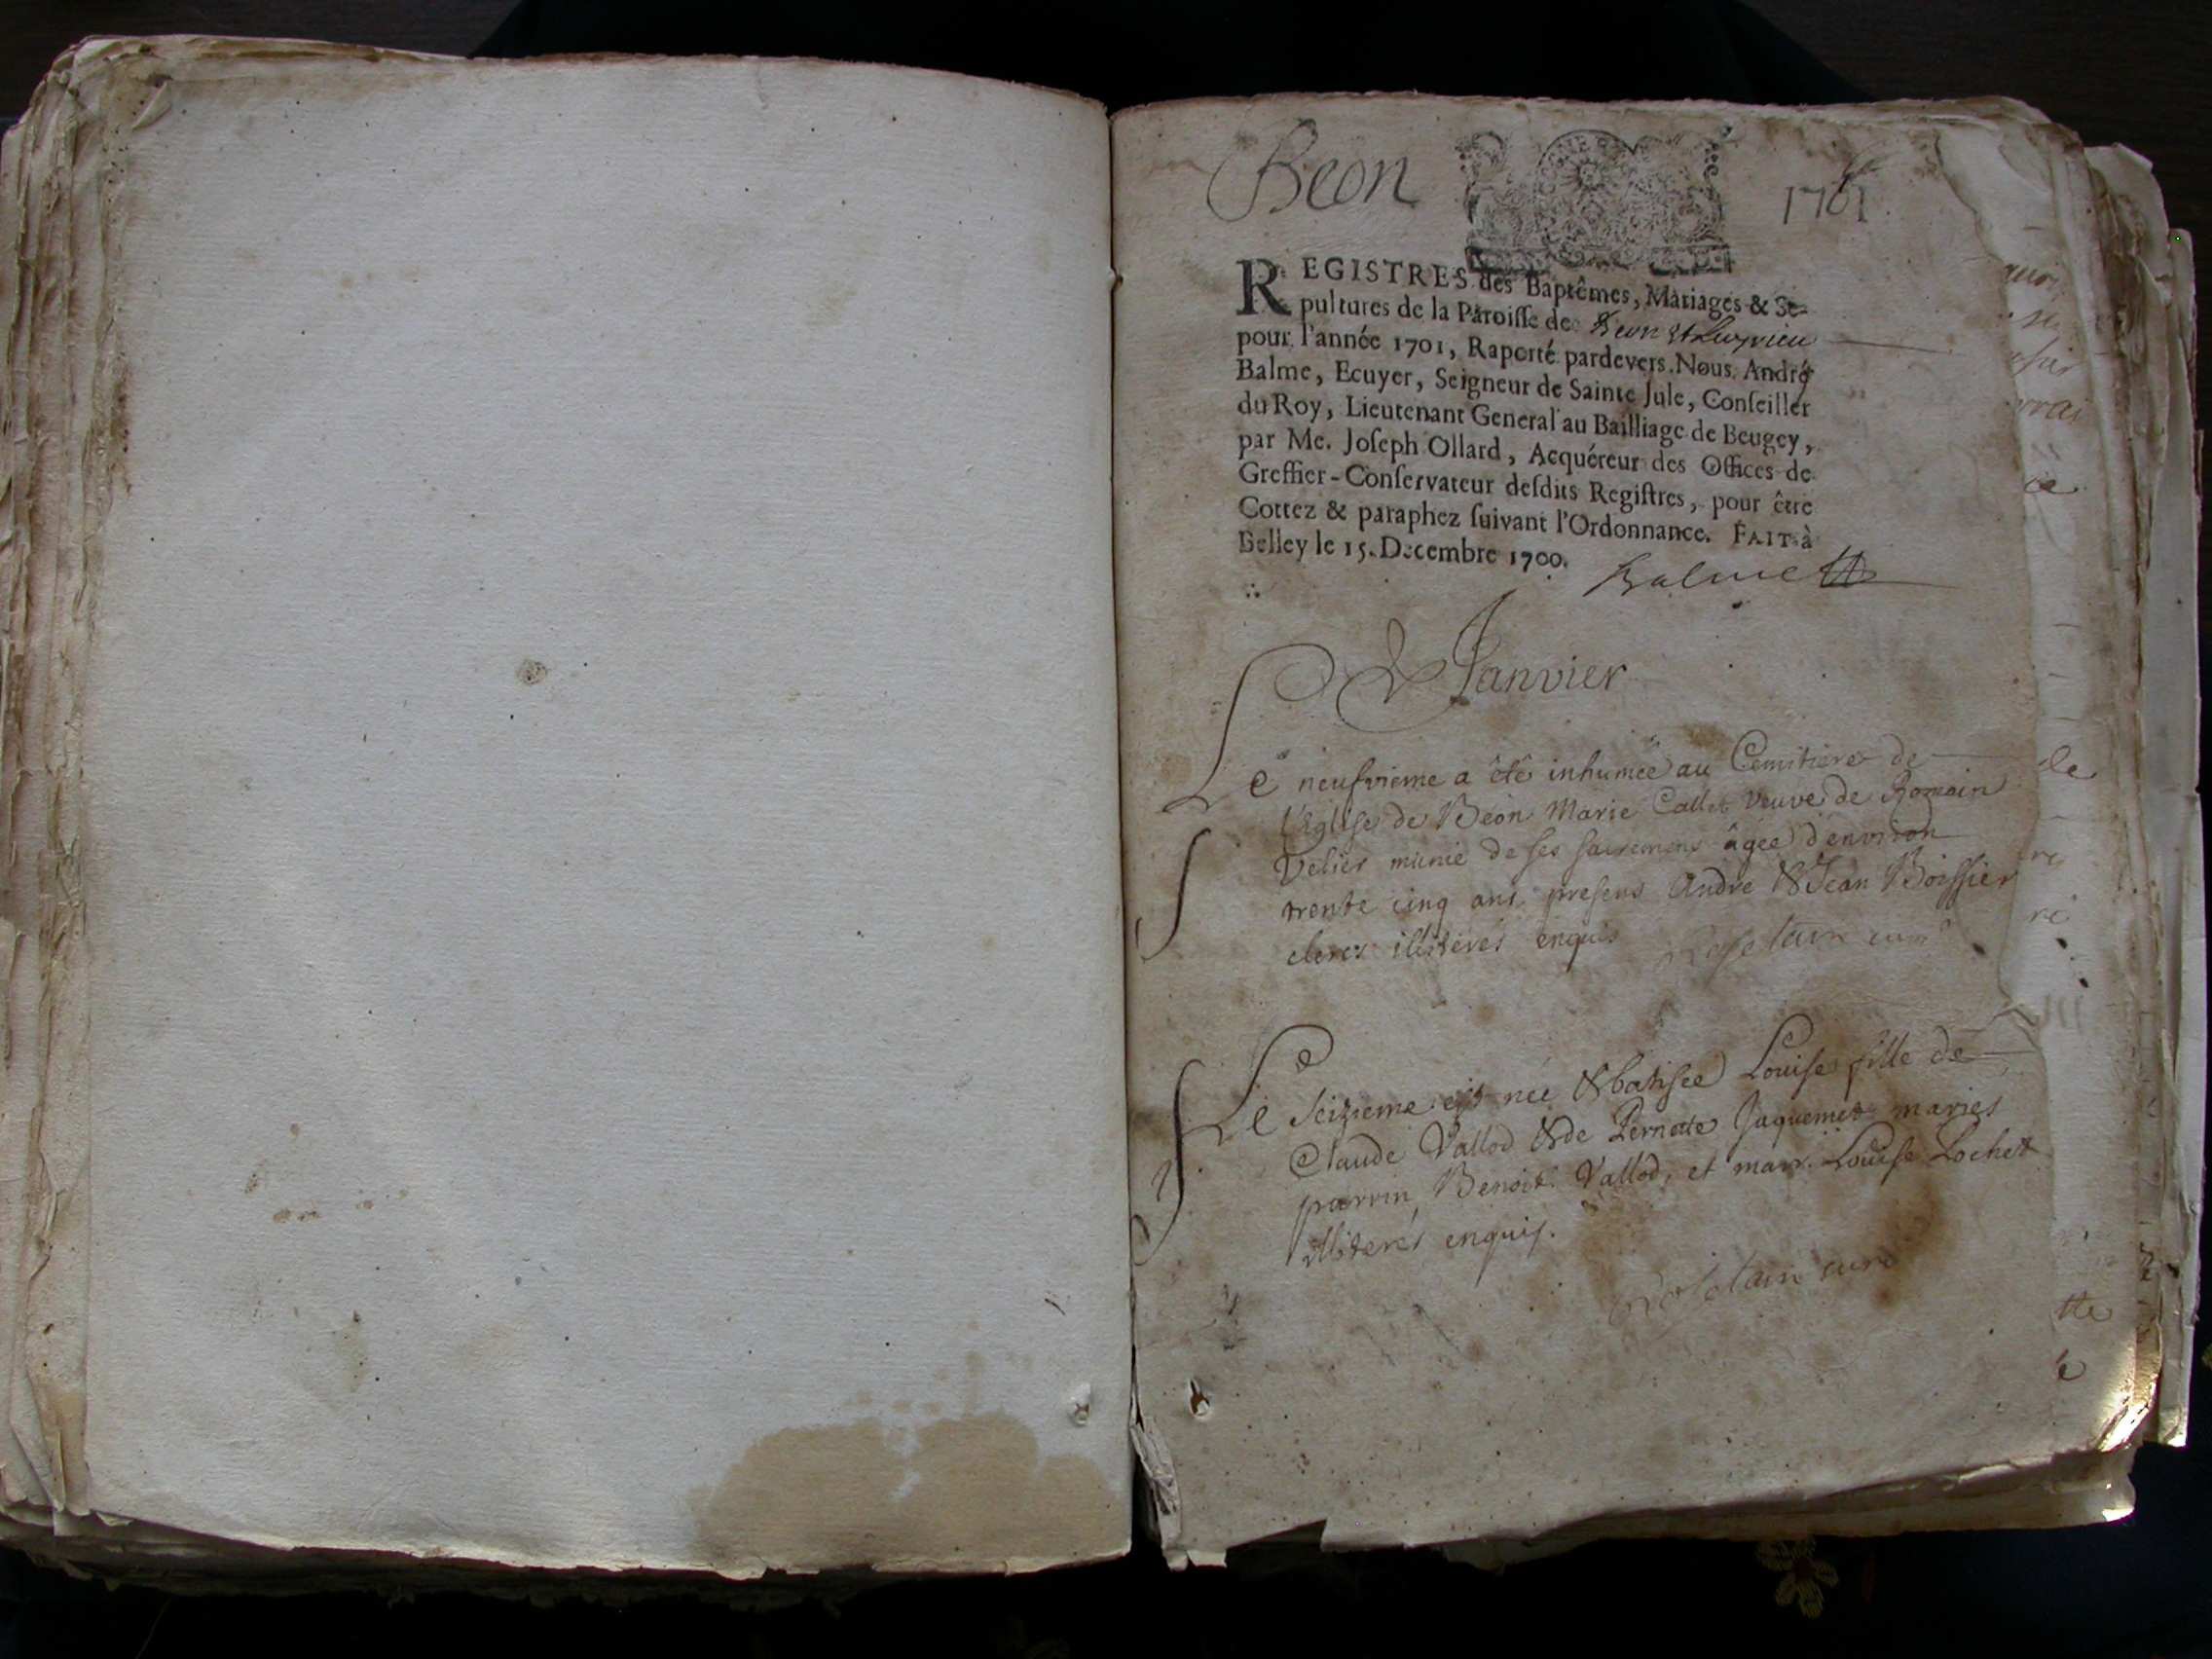 Beon 1701
REGISTRES des Baptêmes, Mariages & Se-
pultures de la Paroisse de Beon et Luyrieu
pour l'année 1701, Raporté pardevers Nous André
Balme, Ecuyer, Seigneur de Sainte Jule, Conseiller
du Roy, Lieutenant General au Bailliage de Beugey,
par Me. Joseph Ollard, Acquéreur des Offices de
Greffier-Conservateur desdits Registres, pour être
Cottez & paraphez suivant l'Ordonnance. FAIT à
Belley le 15. Decembre 1700.
Balme
Janvier
Le neufvieme a êté inhumée au Cemitiere de
l'Eglise de Béon Marie Callet veuve de Romain
Velier munie de ses sacremens âgée d'environ
trente cinq ans presens André & Jean Boissier
clercs illiterés enquis Roseltain curé
Le seizieme est née & batisée Louise fille de
Claude Vallod & de Pernette Jaquemet mariés
parrin Benoit Vallod, et marr. Louise Lochet
illiterés enquis.
curé